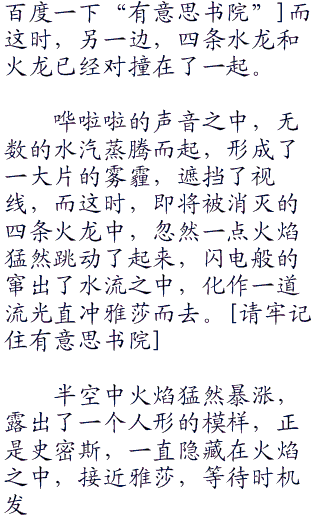 百度一下“有意思书院”]而
这时，另一边，四条水龙和
火龙已经对撞在了一起。
哗啦啦的声音之中，无
数的水汽蒸腾而起，形成了
一大片的雾霾，遮挡了视
线，而这时，即将被消灭的
四条火龙中，忽然一点火焰
猛然跳动了起来，闪电般的
窜出了水流之中，化作一道
流光直冲雅莎而去。[请牢记
住有意思书院]
半空中火焰猛然暴涨，
露出了一个人形的模样，正
是史密斯，一直隐藏在火焰
之中，接近雅莎，等待时机
发